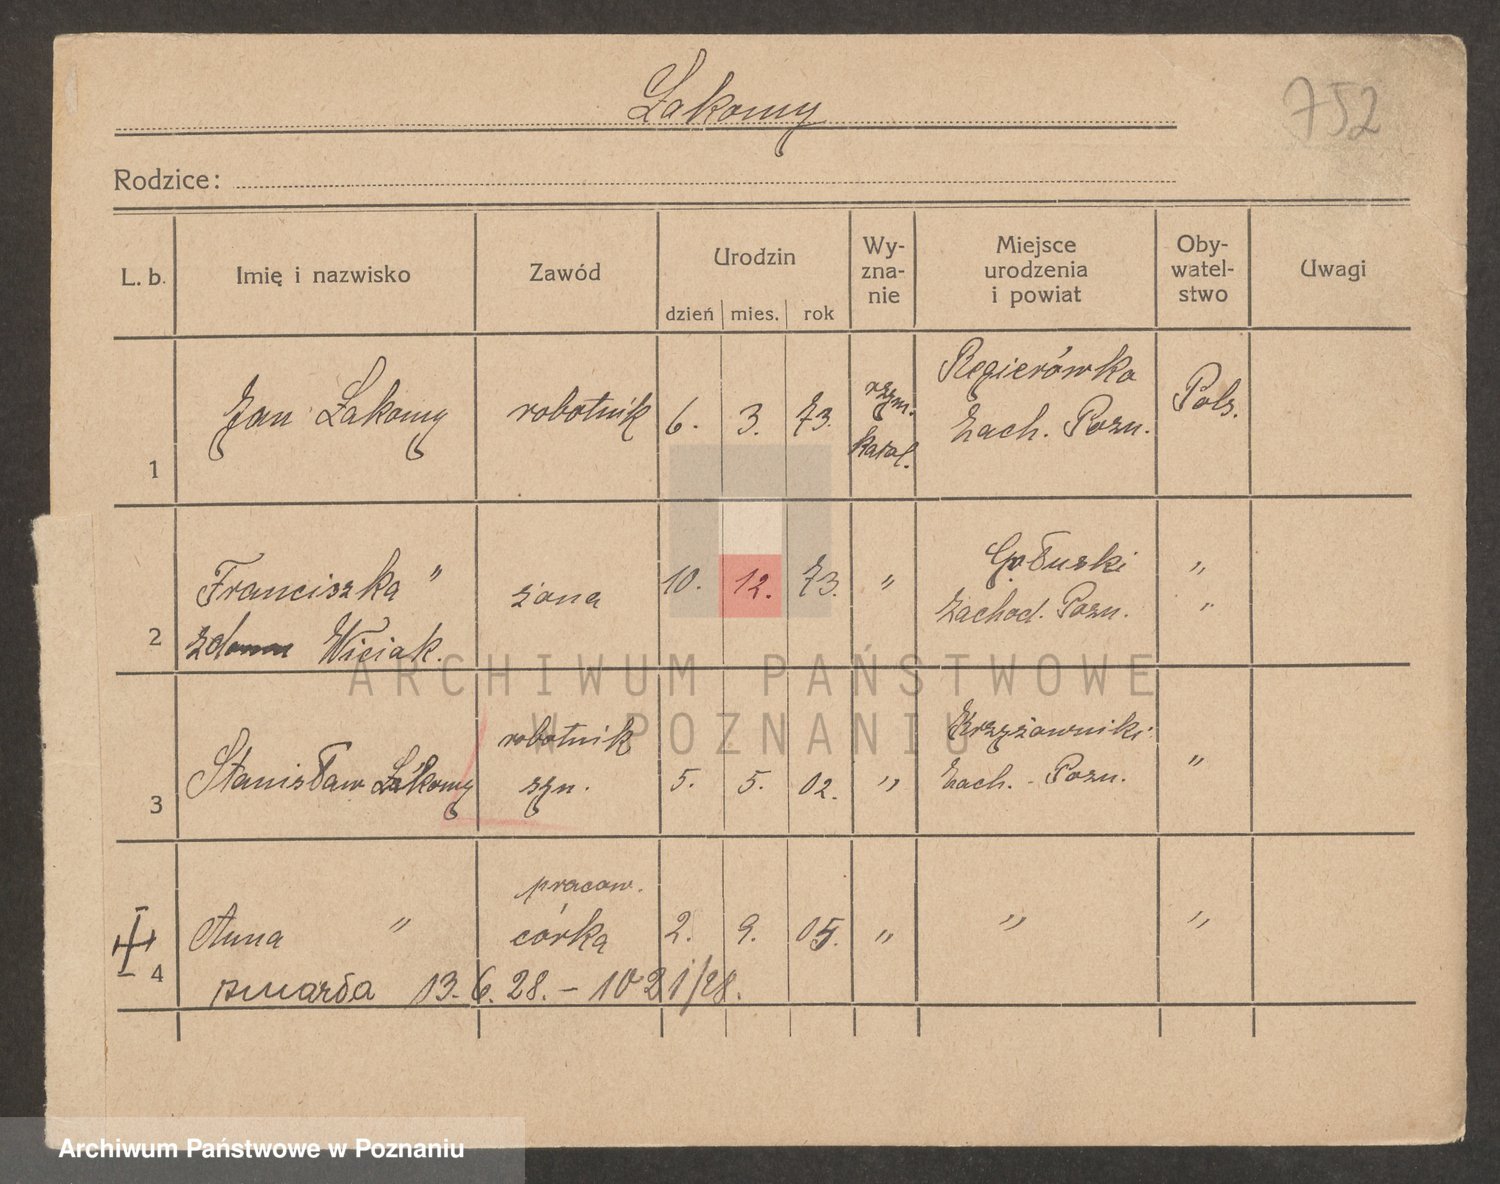 Łakomy
752
Rodzice:
L. b.
Imię i nazwisko
Zawód
Urodzin
dzień mies. rok
Wy-
zna-
nie
Miejsce
urodzenia
i powiat
Oby-
watel-
stwo
Uwagi
1 Jan Łakomy robotnik 6. 3. 73.
rzym.
katol.
Regierówka
Zach. Pozn.
Pols.
Franciszka " żona 10. 12. 73. " Gołuski "
2 zdomu Wiciak. Zachod. Pozn. "
robotnik Krzyżowniki
3 Stanisław Łakomy syn. 5. 5. 02. " Zach. - Pozn. "
pracow.
Anna " córka 2. 9. 05. " " "
4 zmarła 13. 6. 28. - 1021/28.
ARCHIWUM PAŃSTWOWE
W POZNANIU
Archiwum Państwowe w Poznaniu